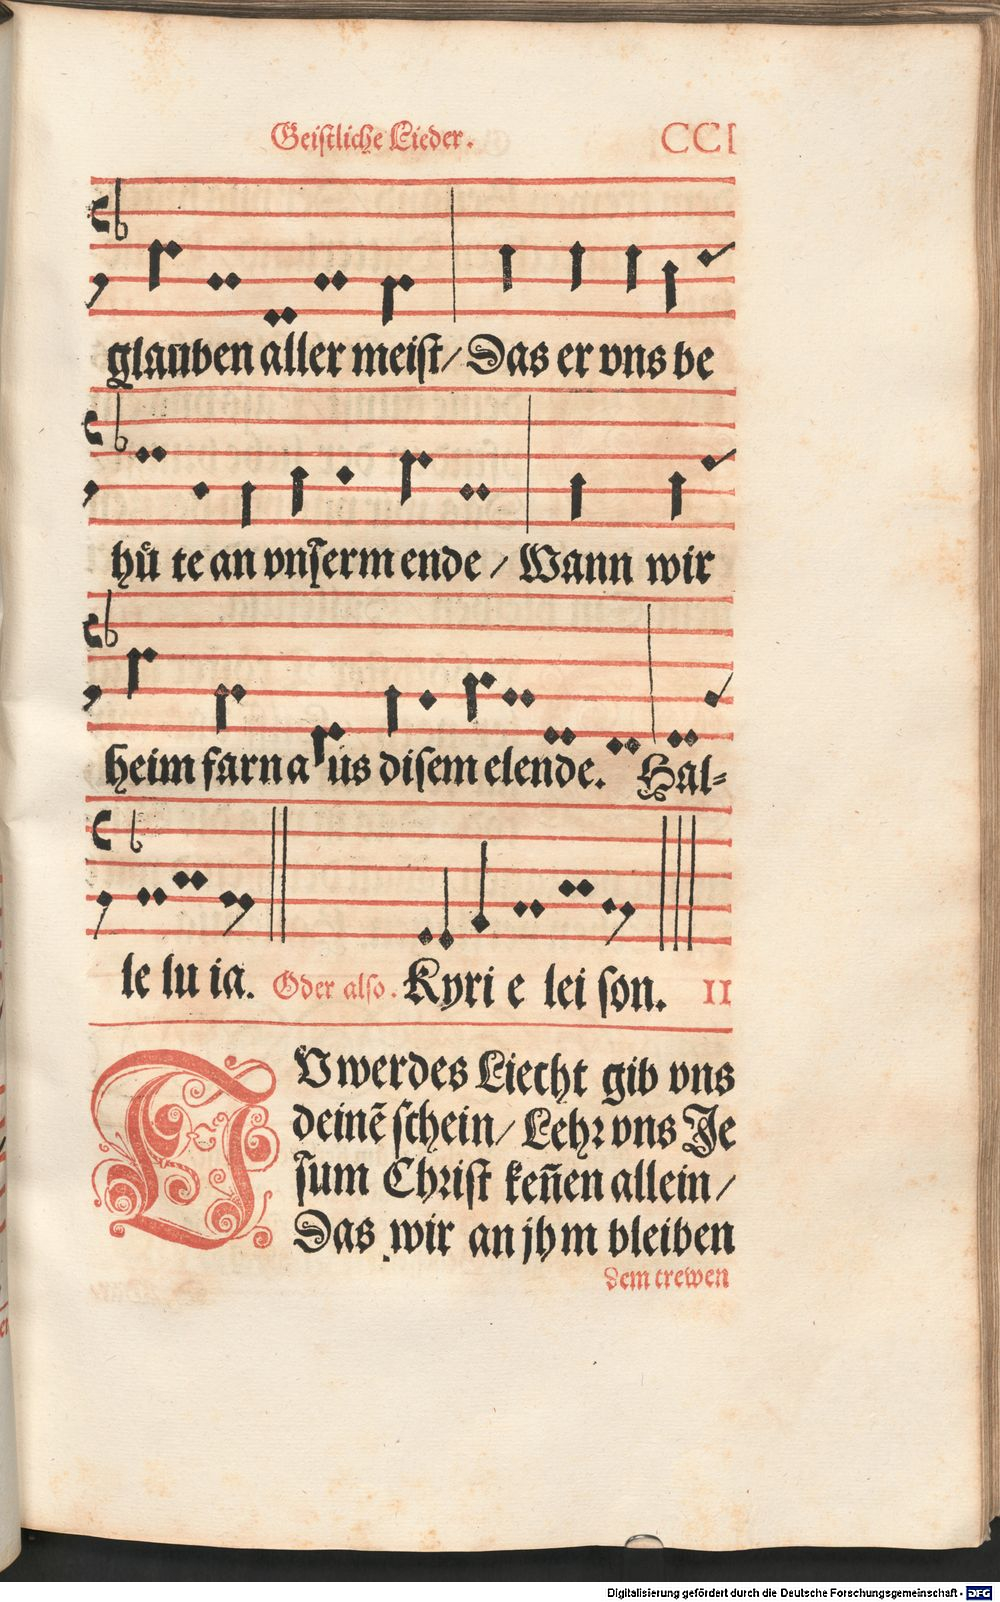 Geistliche Lieder. CCI
glauben aller meist/ Das er vns be
hüͤ te an vnserm ende / Wann wir
heim farn a us disem elende. Hal-
le lu ia. Oder also. Kyri e lei son. II
DV werdes Liecht gib vns
deinē schein/ Lehr vns Je
sum Christ keñen allein/
Das wir an jhm bleiben
dem trewen
Digitalisierung gefördert durch die Deutsche Forschungsgemeinschaft - DFG